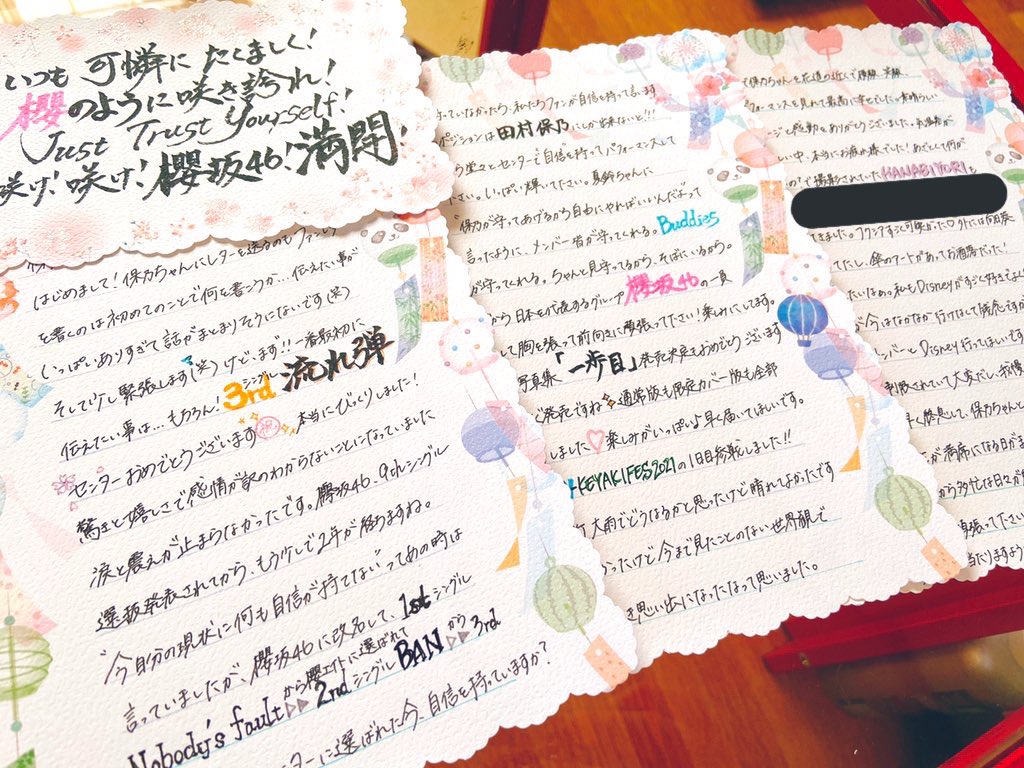 いつも 可憐に たくましく!
櫻のように咲き誇れ!
Just Trust Yourself!
咲け! 咲け! 櫻坂46! 満開!
はじめまして! 保乃ちゃんにレターを送るのもファンレ
を書くのは初めてのことで何を書こうか…伝えたい事が
いっぱいありすぎて話がまとまりそうにないです(笑)
そして少し緊張します(笑)けど…まず!! 一番最初に
伝えたい事は…もちろん! 3rdシングル 流れ弾
センターおめでとうございます 祝 本当にびっくりしました!
驚きと嬉しさで感情が訳のわからないことになっていました
涙と震えが止まらなかったです。欅坂46、9thシングル
選抜発表されてから、もう少しで2年が経ちますね。
"今自分の現状に何も自信が持てない"ってあの時は
言っていましたが、櫻坂46に改名して、1stシングル
Nobody's faultから櫻エイトに選ばれて 2ndシングル BANから 3rd
ターに選ばれた今、自信を持っていますか?
っていなかったら、私たちファンが自信を持って言います
ポジションは田村保乃にしか出来ないと!!!
ら堂々とセンターで自信を持ってパフォーマンスして
ださい。いっぱい輝いて下さい。夏鈴ちゃんに
"保乃が守ってあげるから自由にやればいいんだよって
言ったように、メンバー皆が守ってくれる。Buddies
が守ってくれる。ちゃんと見守ってるから。そばにいるから。
から日本を代表するグループ 櫻坂46の一員
して胸を張って前向きに頑張って下さい! 楽しみにしてます。
写真集「一歩目」発売決定もおめでとうございます
ぐ発売ですね 通常版も限定カバー版も全部
しました♡ 楽しみがいっぱいよ早く届いてほしいです。
KEYAKIFES2021の1日目参戦しました!!
大雨でどうなるかと思ったけど晴れてよかったです
ったけど今まで見たことのない世界観で
き思い出になったなって思いました。
て保乃ちゃんを花道の近くで
フォーマンスを見れて最高に幸せでした。素晴らしい
ージと感動をありがとうございました。
しい中、本当にお疲れ様でした! あとして何が
の?で撮影されていたHANABIYORIも
てきました。
てたし、傘のアートがあってお洒落だった!
たいなぁ。私もDisneyがすごく好きで
が今はなかなか行けなくて残念ですが
ンバーとDisney行ってほしいです
制限されていて大変だし、我慢
早く終息して、保乃ちゃんと
が満席になる日がま
から多忙な日々が
頑張って下さい
当たりますよう